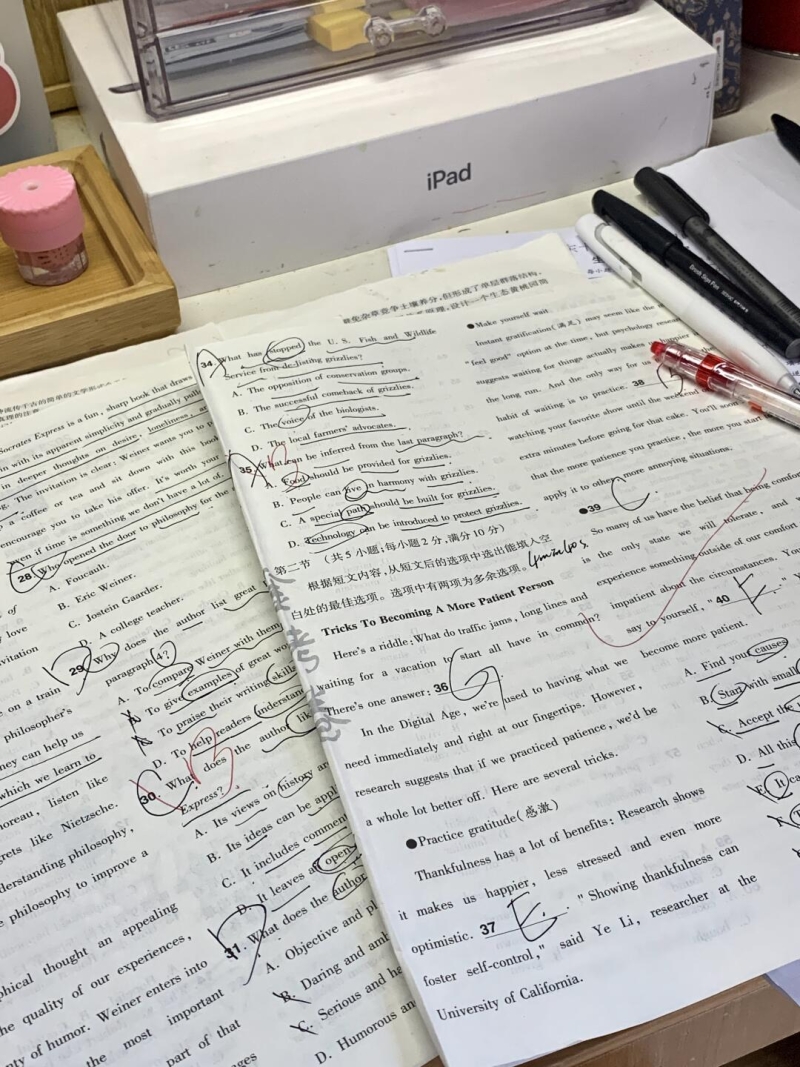 iPad
免杂草竞争土壤养分,但形成了单层群落结构,
原理,设计一个生态黄桃园简
34. What has stopped the U. S. Fish and Wildlife
Service from de-listing grizzlies?
A. The opposition of conservation groups.
B. The successful comeback of grizzlies.
C. The voice of the biologists.
D. The local farmers' advocates.
35. What can be inferred from the last paragraph?
A. Food should be provided for grizzlies.
B. People can live in harmony with grizzlies.
C. A special path should be built for grizzlies.
D. Technology can be introduced to protect grizzlies.
第二节 (共5小题;每小题2分,满分10分)
根据短文内容,从短文后的选项中选出能填入空
白处的最佳选项。选项中有两项为多余选项。
Tricks To Becoming A More Patient Person
Here's a riddle: What do traffic jams, long lines and
waiting for a vacation to start all have in common?
There's one answer: 36 G.
In the Digital Age, we're used to having what we
need immediately and right at our fingertips. However,
research suggests that if we practiced patience, we'd be
a whole lot better off. Here are several tricks.
●Practice gratitude(感激)
Thankfulness has a lot of benefits: Research shows
it makes us happier, less stressed and even more
optimistic. 37 E. "Showing thankfulness can
foster self-control," said Ye Li, researcher at the
University of California.
●Make yourself wait
Instant gratification(满足) may seem like the
"feel good" option at the time, but psychology
suggests waiting for things actually makes
the long run. And the only way for us
habit of waiting is to practice. 38
watching your favorite show until the weekend
extra minutes before going for that cake. You'll soon
that the more patience you practice, the more you start
apply it to other more annoying situations.
●39 C
So many of us have the belief that being comfor
is the only state we will tolerate, and
experience something outside of our comfort
impatient about the circumstances. You
say to yourself, "40 E
become more patient.
A. Find your causes
B. Start with small
C. Accept the
D. All this
E. It ca
Socrates Express is a fun, sharp book that draws
in with its apparent simplicity and gradually pull
in deeper thoughts on desire, loneliness,
The invitation is clear: Weiner wants you to
a coffee or tea and sit down with this book
encourage you to take his offer. It's worth your
even if time is something we don't have a lot of.
28. Who opened the door to philosophy for the
A. Foucault.
B. Eric Weiner.
C. Jostein Gaarder.
D. A college teacher.
29. Why does the author list great
paragraph 4?
A. To compare Weiner with them
B. To give examples of great wo
C. To praise their writing skills
D. To help readers understan
30. What does the author lik
Express?
A. Its views on history an
B. Its ideas can be appl
C. It includes comment
D. It leaves a open
31. What does the author
A. Objective and pl
B. Daring and am
C. Serious and ha
D. Humorous an
of
love
invitation
e on a train
philosopher's
hey can help us
which we learn to
oreau, listen like
grets like Nietzsche.
derstanding philosophy,
e philosophy to improve a
phical thought an appealing
he quality of our experiences,
nty of humor. Weiner enters into
the most important
part of that